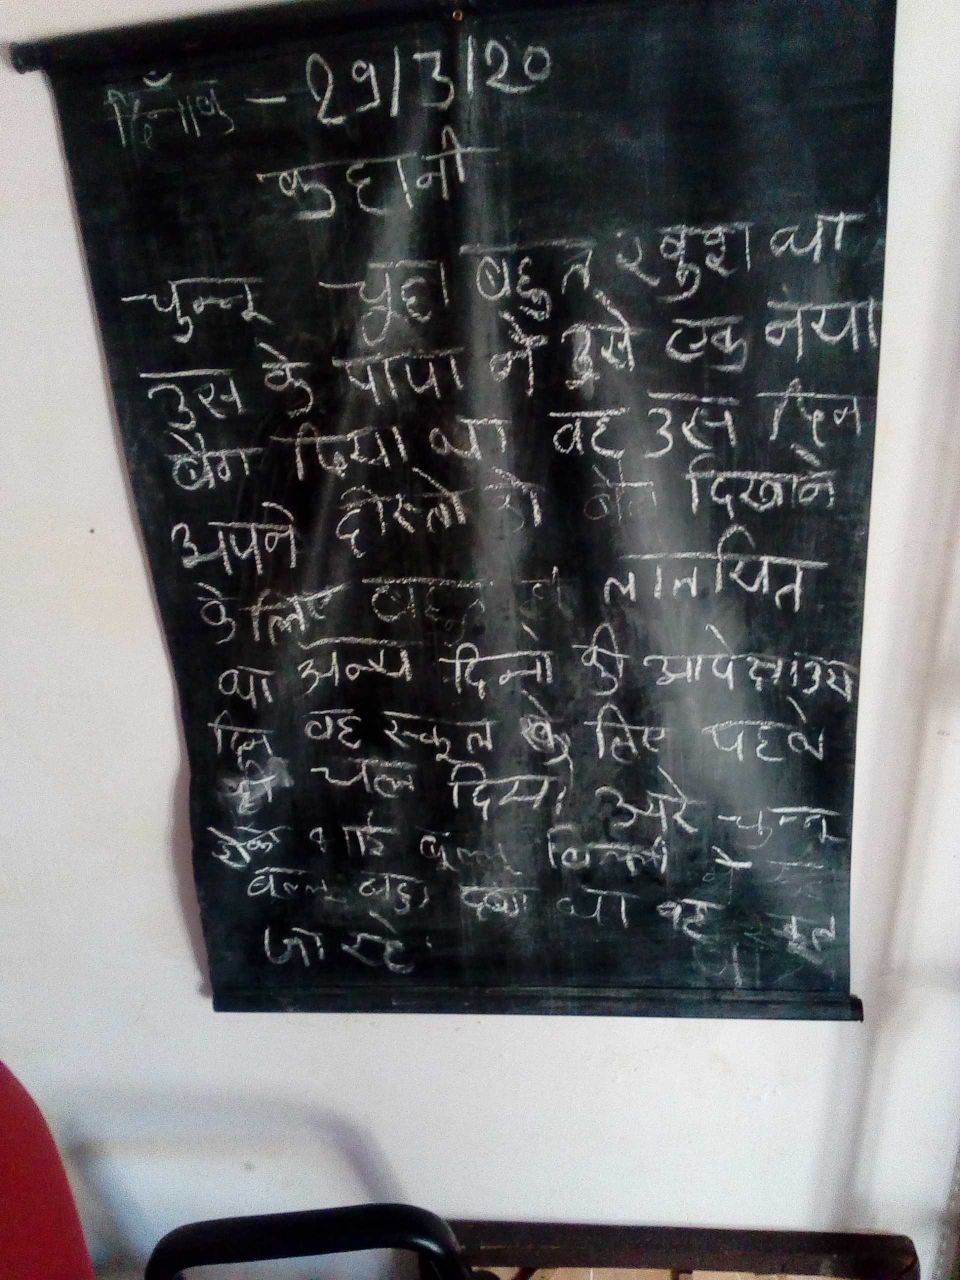 दिनाँक - 29/3/20
कहानी
चुन्नू चूहा बहुत खुश था
उस के पापा ने उसे एक नया
बैग दिया था वह उस दिन
अपने दोस्तो को बैग दिखाने
के लिए बहुत ही लालायित
था अन्य दिनों की आपेक्षा उस
दिन वह स्कूल के लिए पहले
ही चल दिया अरे चुन्नू
रोको भाई बल्लू बिल्ली ने
बल्लू बड़ा था
जा रहे